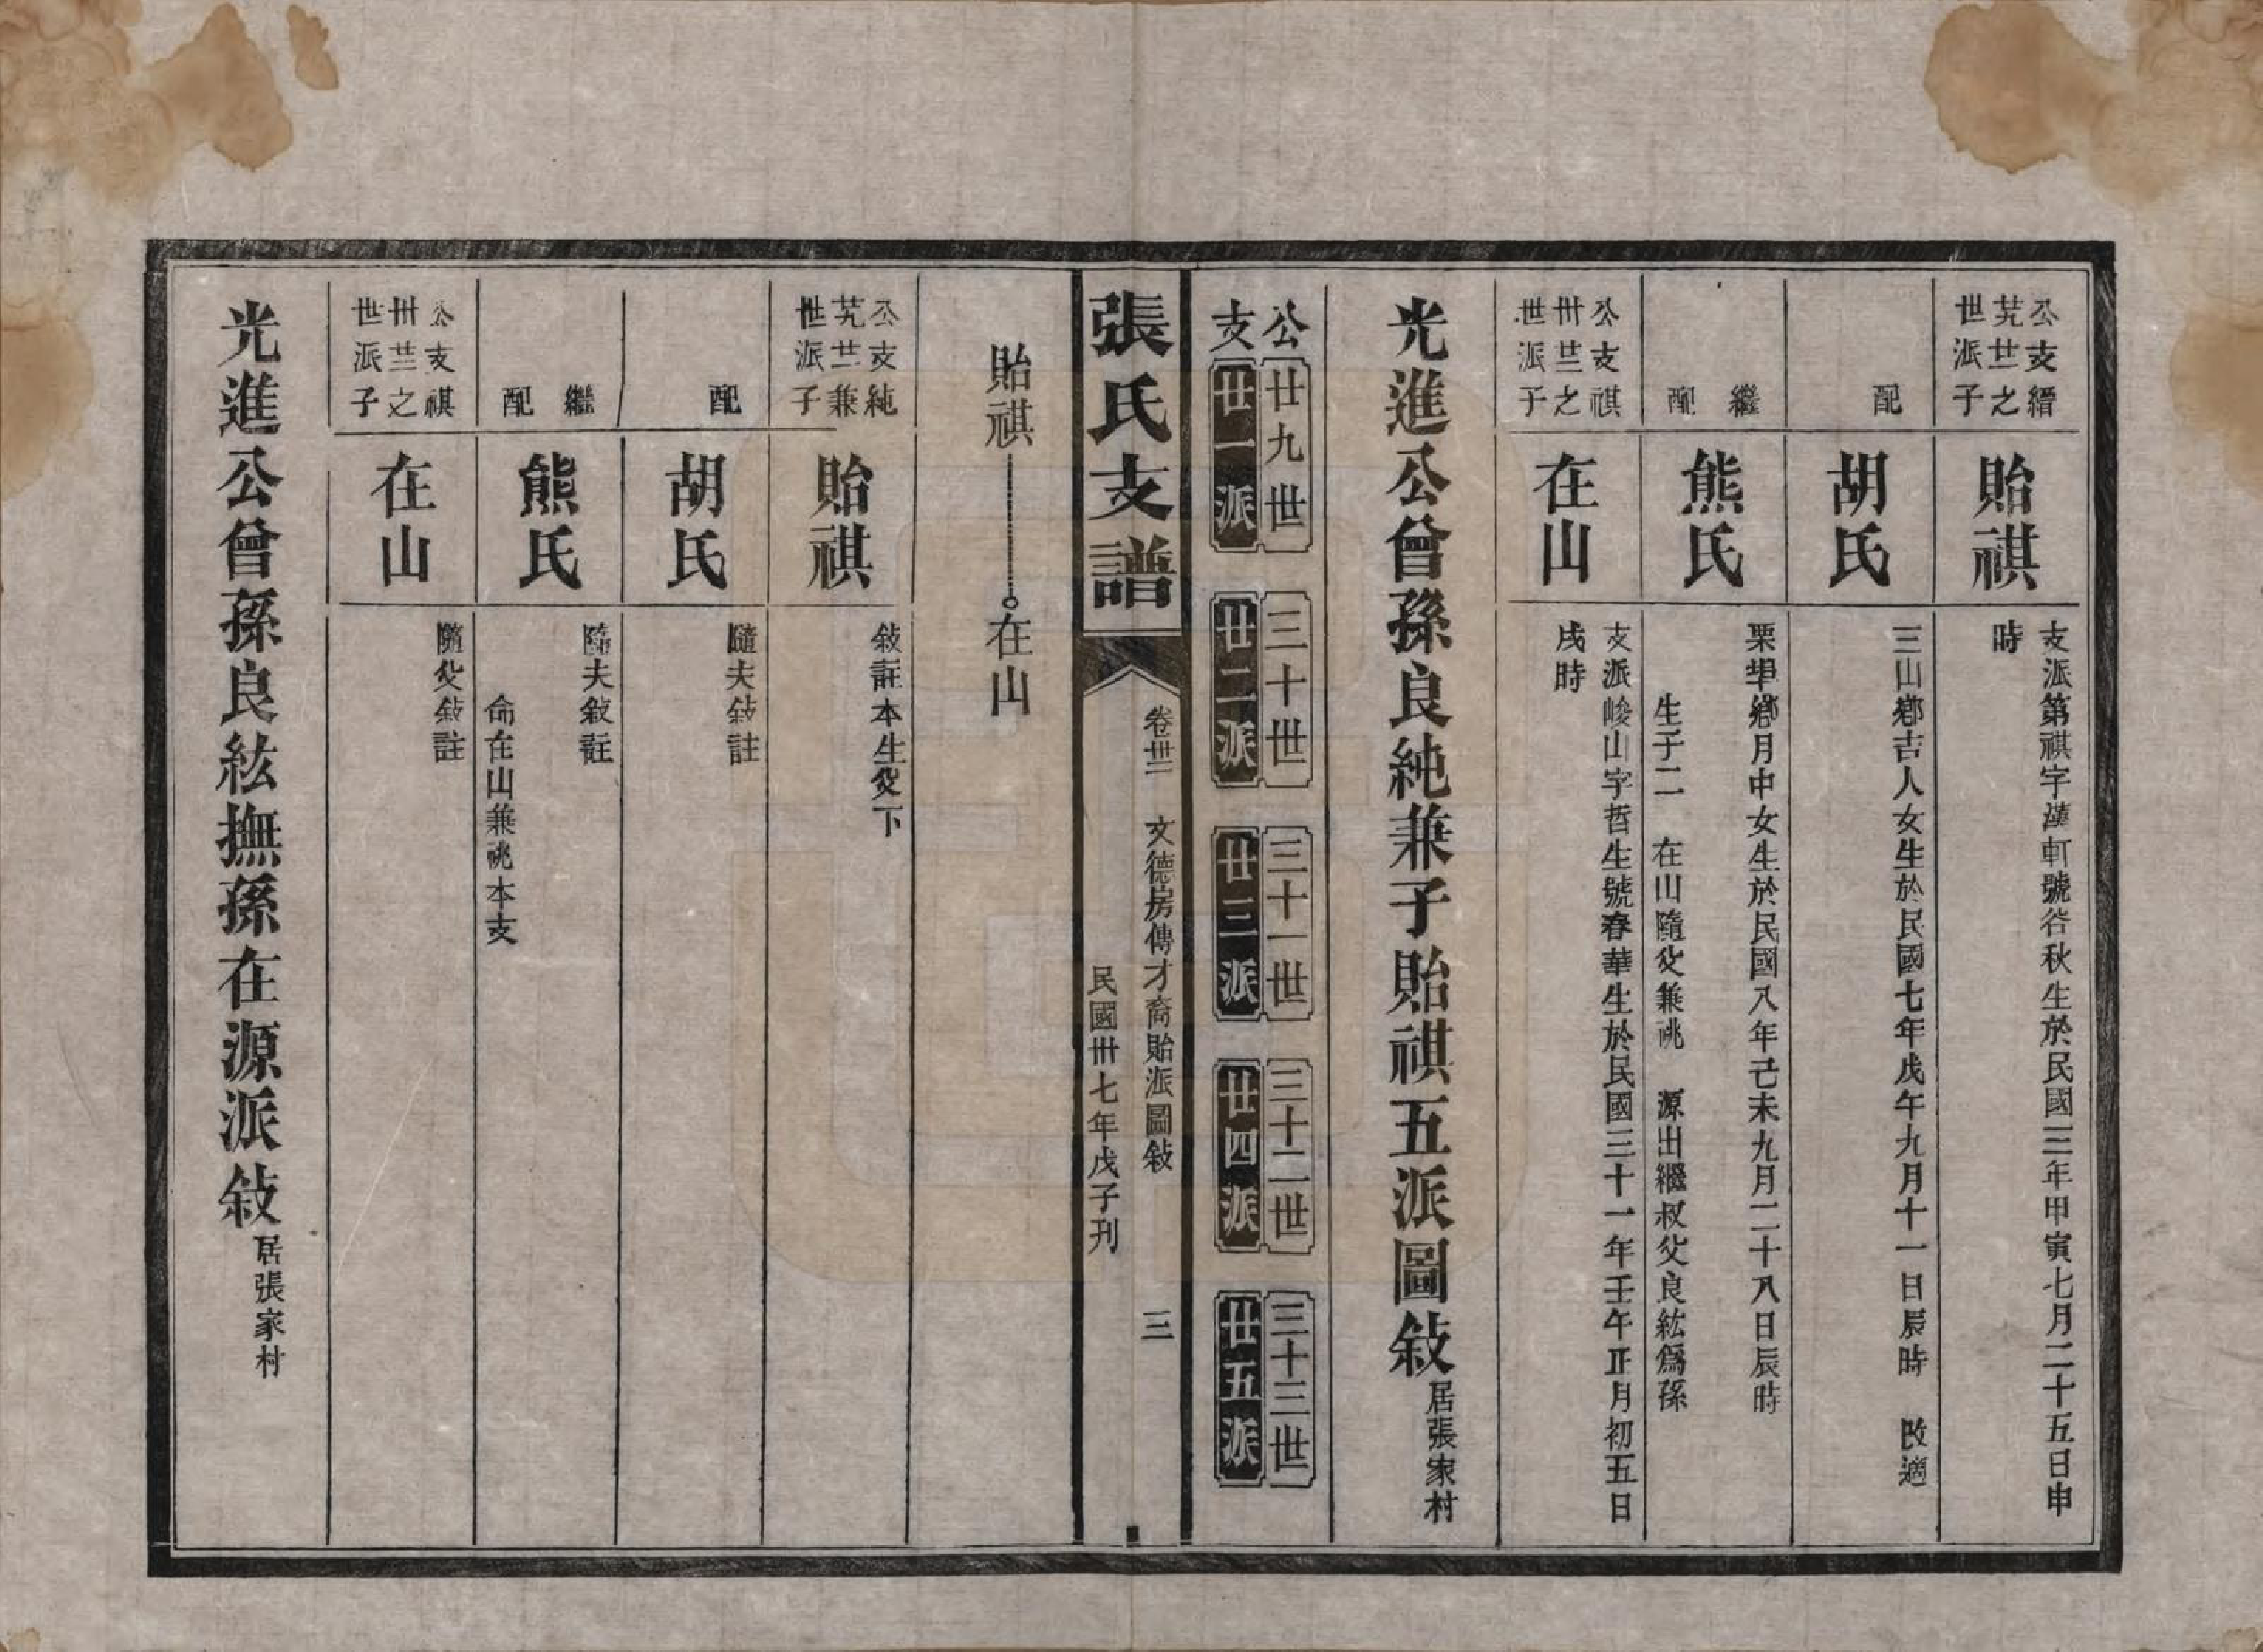 公支縉
艽世之
世派子
貽祺
支派第祺字漢軒號谷秋生於民國三年甲寅七月二十五日申
時
配
胡氏
三山鄉吉人女生於民國七年戊午九月十一日辰時 改適
繼配
熊氏
栗鄉月中女生於民國八年己未九月二十八日辰時
生子二 在山隨父兼祧 源出繼叔父良紘爲孫
公支祺
卅芸之
世派子
在山
支派峻山字哲生號春華生於民國三十一年壬午正月初五日
戌時
光進公曾孫良純兼子貽祺五派圖敍居張家村
公 廿九世 三十世 三十一世 三十二世 三十三世
支 廿一派 廿二派 廿三派 廿四派 廿五派
張氏支譜
卷卅三 文德房傳才裔貽派圖敍 三
民國卅七年戊子刊
貽祺 在山
公支純
艽芸兼
世派子
貽祺
敍註本生父下
配
胡氏
隨夫敍註
繼配
熊氏
隨夫敍註
命在山兼祧本支
公支祺
卅芸之
世派子
在山
隨父敍註
光進公曾孫良紘撫孫在源派敍居張家村